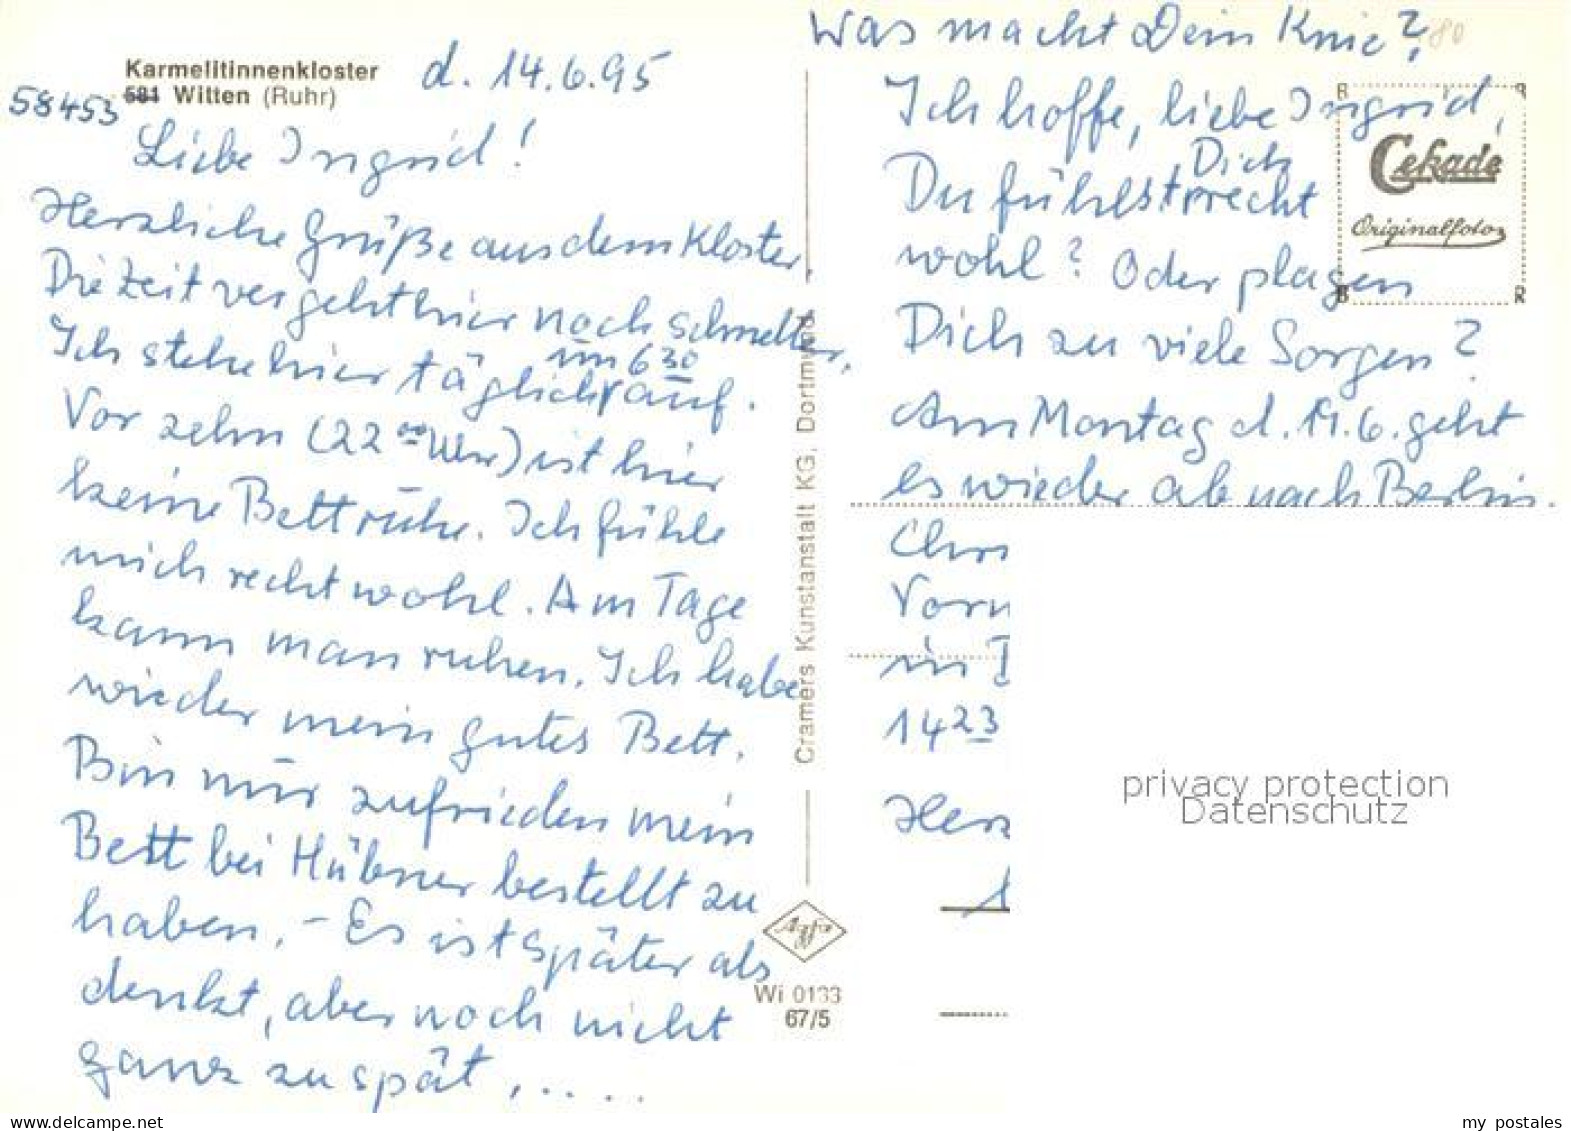 Karmelitinnenkloster
581 Witten (Ruhr)
58453
d. 14.6.95
Liebe Ingrid!
Herzliche Grüße aus dem Kloster.
Die Zeit vergeht hier noch schneller,
Ich stehe hier täglich um 6 30 auf.
Vor zehn (22 00 Uhr) ist hier
keine Bettruhe. Ich fühle
mich recht wohl. Am Tage
kann man ruhen. Ich habe
wieder mein gutes Bett.
Bin nur zufrieden mein
Bett bei Hübner bestellt zu
haben. – Es ist später als
denkt, aber noch nicht
ganz zu spät, ....
Cramers Kunstanstalt KG, Dortmund
Agfa
Wi 0133
67/5
Was macht Dein Knie?
80
Ich hoffe, liebe Ingrid,
Du fühlst Dich recht
wohl? Oder plagen
Dich zu viele Sorgen?
Am Montag d. 19.6. geht
es wieder ab nach Berlin.
Chris
Vorm
im I
14 23
Herz
Cekade
Originalfoto
privacy protection
Datenschutz
delcampe.net
my_postales